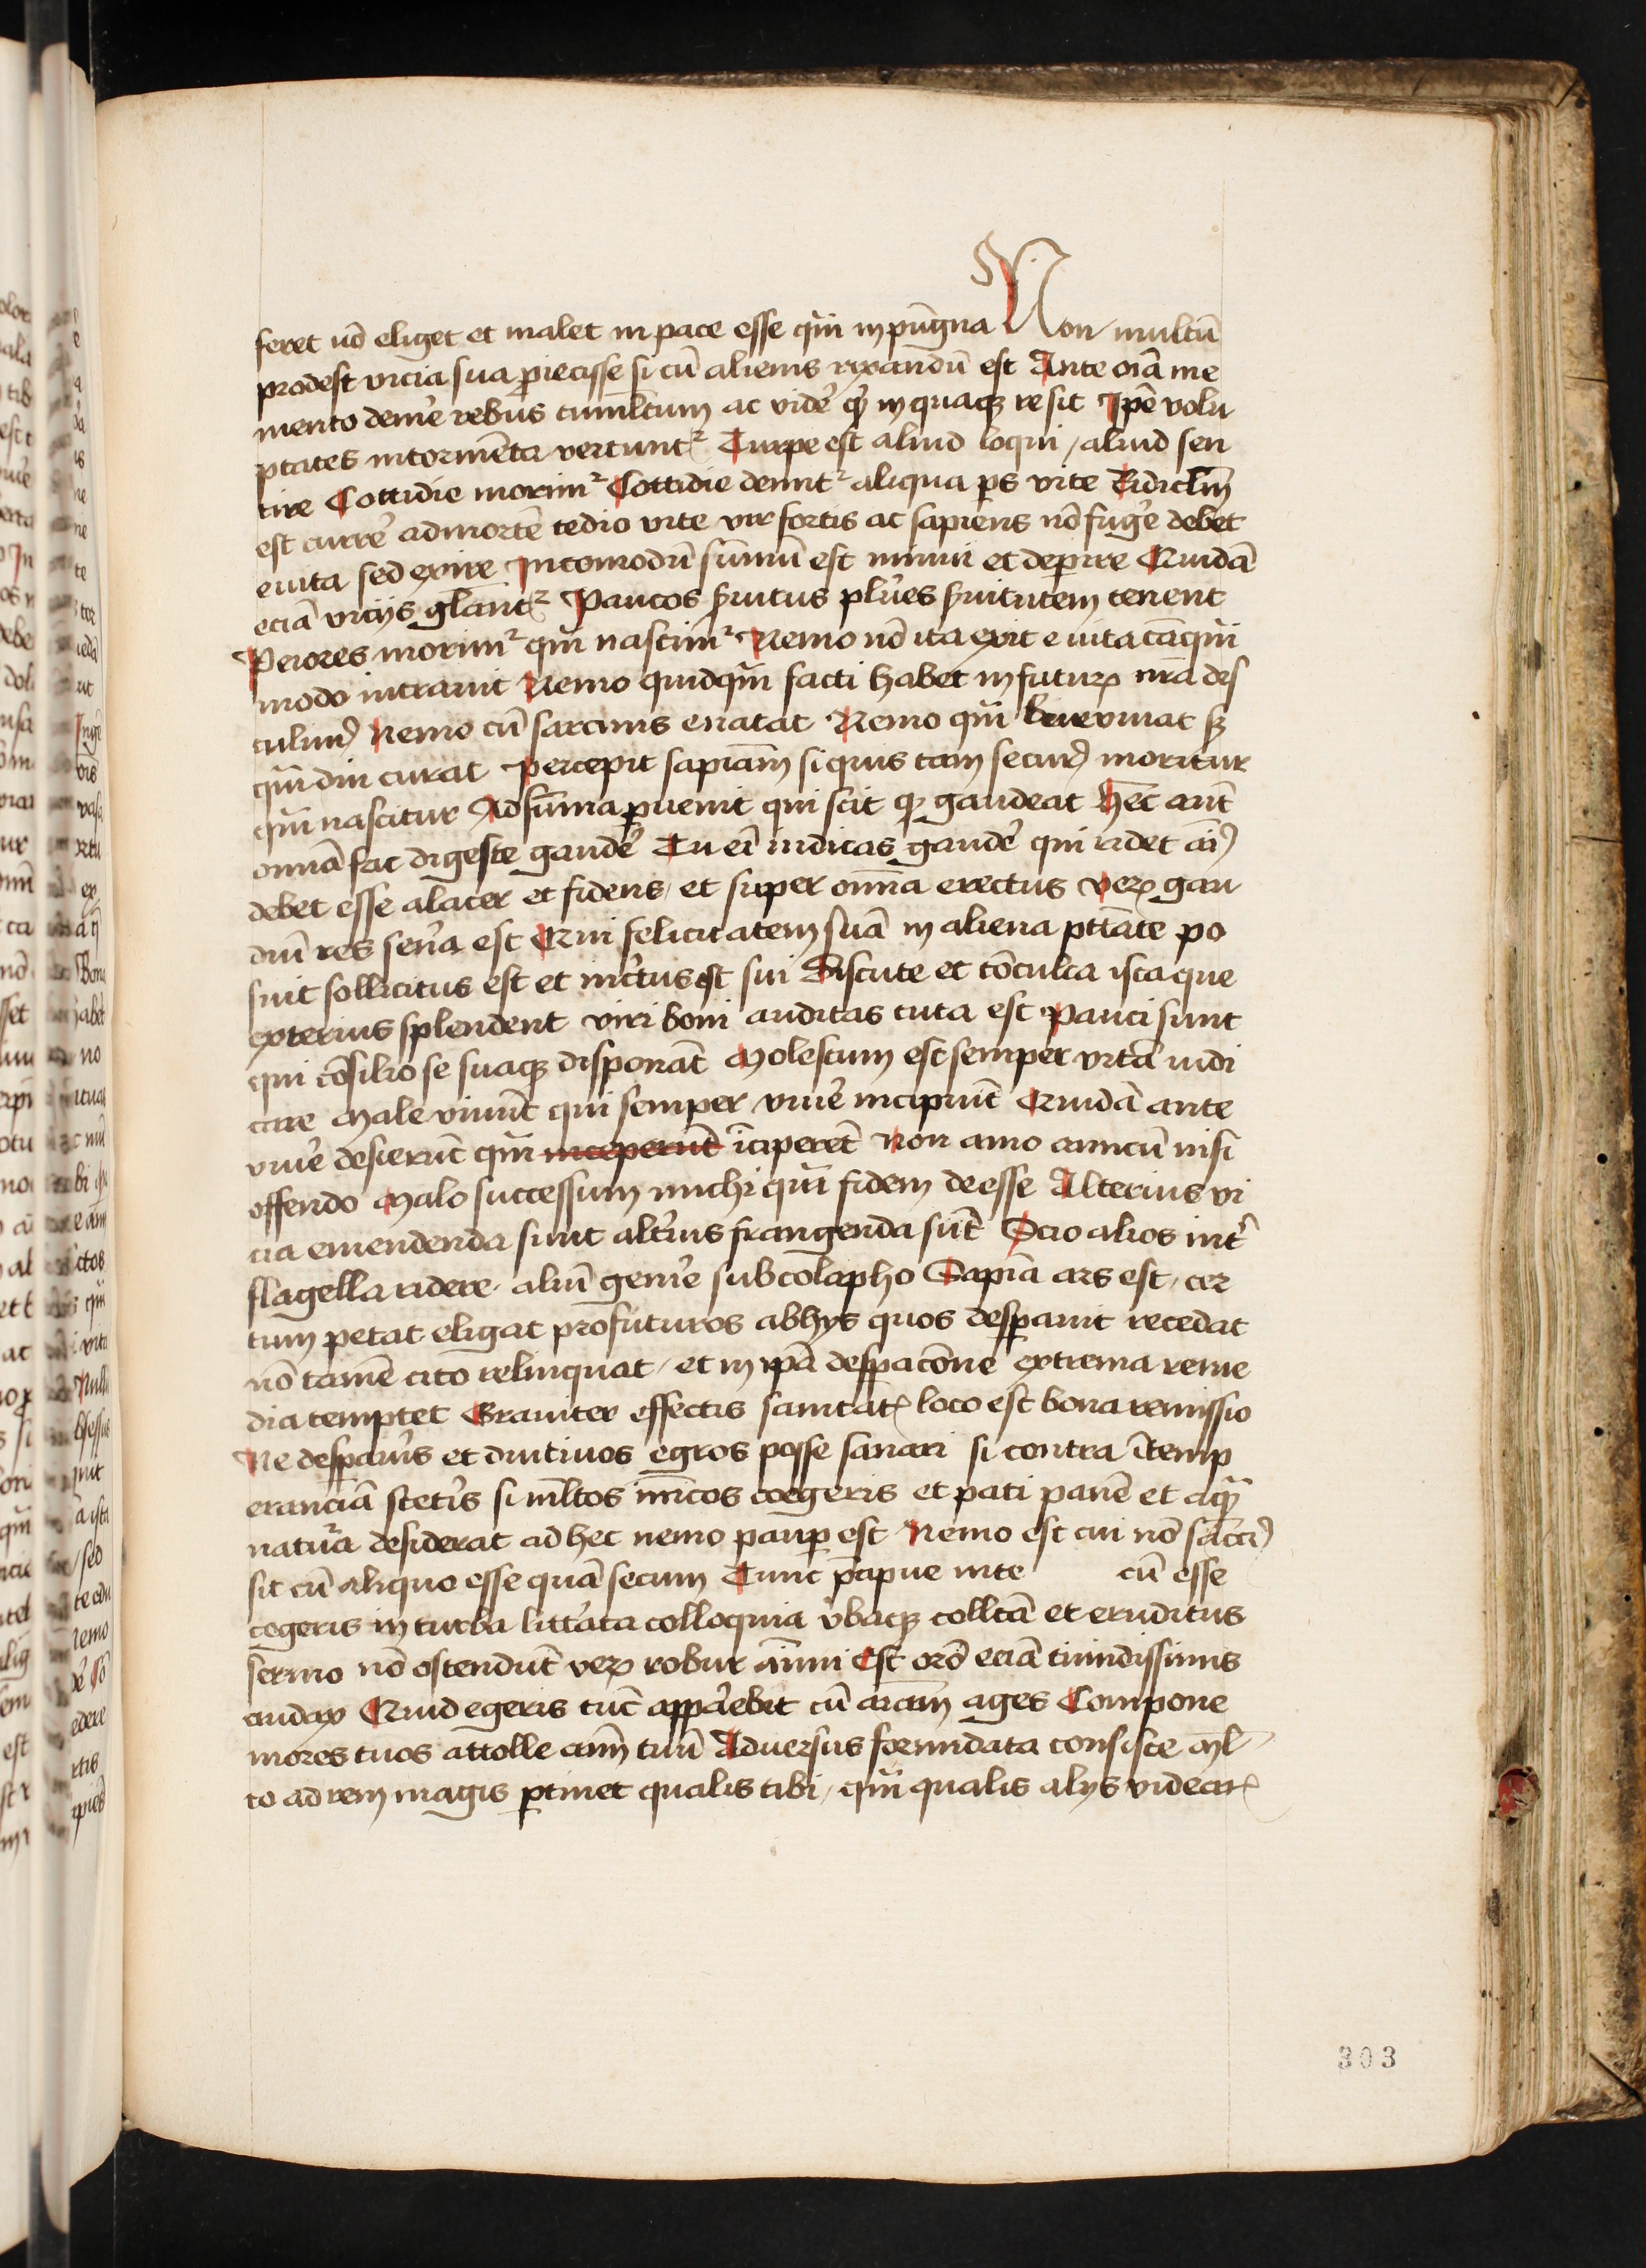 feret nō eliget et malet in pace esse qͣm in pūgna Non multū
prodest vicia sua ꝓiecisse si cū alienis rixandū est Ante oīa me
mento demē rebus tumltum ac vidē qͥd in quaqꝫ re sit Ipē volu
ptates in tormēta vertuntᷣ Turpe est aliud loqui / aliud sen
tire Cottidie morimᷣ Cottidie demitᷣ aliqua ps vite Ridiclm̄
est currē ad mortē tedio vite vir fortis ac sapiens nō fugē debet
e uita sed exire Incomodū sūmū est minui et deperire Quidā
eciā vicijs gl̄antᷣ Paucos ẜuitus plures ẜuitutem tenent
Peiores morimᷣ qͣm nascimᷣ Nemo nō ita exit e uita tāqͣm
modo intrauit Nemo quidqͣm facti habet in futuꝝ nr̄a des
tulimꝰ Nemo cū sarcinis enatat Nemo qͣm bn̄ viuat sꝫ
qͣm diu curat Percepit sapiam̄ si quis tam securꝰ moritur
qͣm nascitur Ad sūma ꝑuenit qui scit qͦ gaudeat Hec aut̄
omīa fac digeste gaudē Tu eī iudicas gaudē qui ridet aīꝰ
debet esse alacer et fidens / et super omīa erectus Veꝝ gau
diū res seūa est Qui felicitatem suā in aliena ptāte po
suit sollicitus est et incertus est sui Discute et cōculca ista que
exterius splendent viri boni auditas tuta est Pauci sunt
qui cōsilio se suaqꝫ disponāt Molestum est semper vitā indi
care Male viuūt qui semper viuē incipiūt Quidā ante
viuē desierūt qͣm inceperūt īciperēt Non amo amicū nisi
offendo Malo successum michi qͣm fidem deesse Alterius vi
cia emendenda sunt alterius frangenda sūt Scio alios int̄
flagella ridere / aliū gemē sub colapho Sapīa ars est / cer
tum petat eligat profuturos ab hys quos desꝑauit recedat
nō tamē cito relinquat / et in ipā despacōne extrema reme
dia temptet Grauiter effectis sanitatꝭ loco est bona remissio
Ne desparis et diutinos egros posse sanari si contra ītemp
eranciā stetis si ml̄tos inīcos coegeris et pati panē et aqͣm
natura desiderat ad hec nemo paup est Nemo est cui nō sāctiꝰ
sit cū aliquo esse quā secum Tunc p̄cipue in te cū esse
cogeris in turba litterata colloquia v̓baqꝫ collcā et eruditus
sermo nō ostendūt veꝝ robur aīmi Est orō eciā timidissimis
audax Quid egeris tūc apparebit cū aiam̄ ages Compone
mores tuos attolle aīm tuū Aduersus formidata consisce Ml̄
to ad rem magis ꝑtinet qualis tibi / qͣm qualis alijs videarꝭ
303